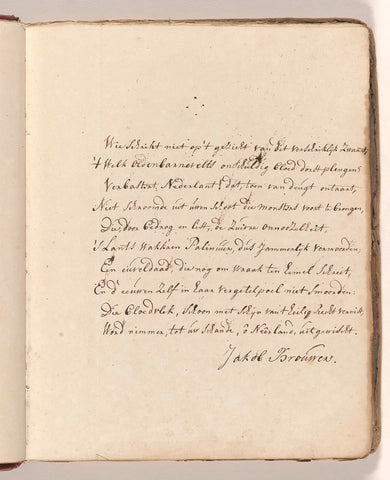 Wie schrikt niet op't gezicht van dit verschriklijk Zwaart,
't Welk Oldenbarnevelts onschuldig bloed dorst plengen!
Verbastert Nederlant! dat, toen van deugt ontaart,
Niet schroomde uit uwen Schoot die monsters voort te brengen,
Die, door bedrog en list, de zuivre onnozelheit,
's Lants wakkren Palinuur, dus jammerlijk vermoorden,
Een euveldaad, die nog om wraak ten Hemel schreit,
En d'eeuwen zelf in haar vergetelpoel niet smoorden:
Die bloedvlek, schoon met schijn van 't heilig recht
Word nimmer, tot uw schande, ô Neêrland, uitgewischt.
Jakob Brouwer.